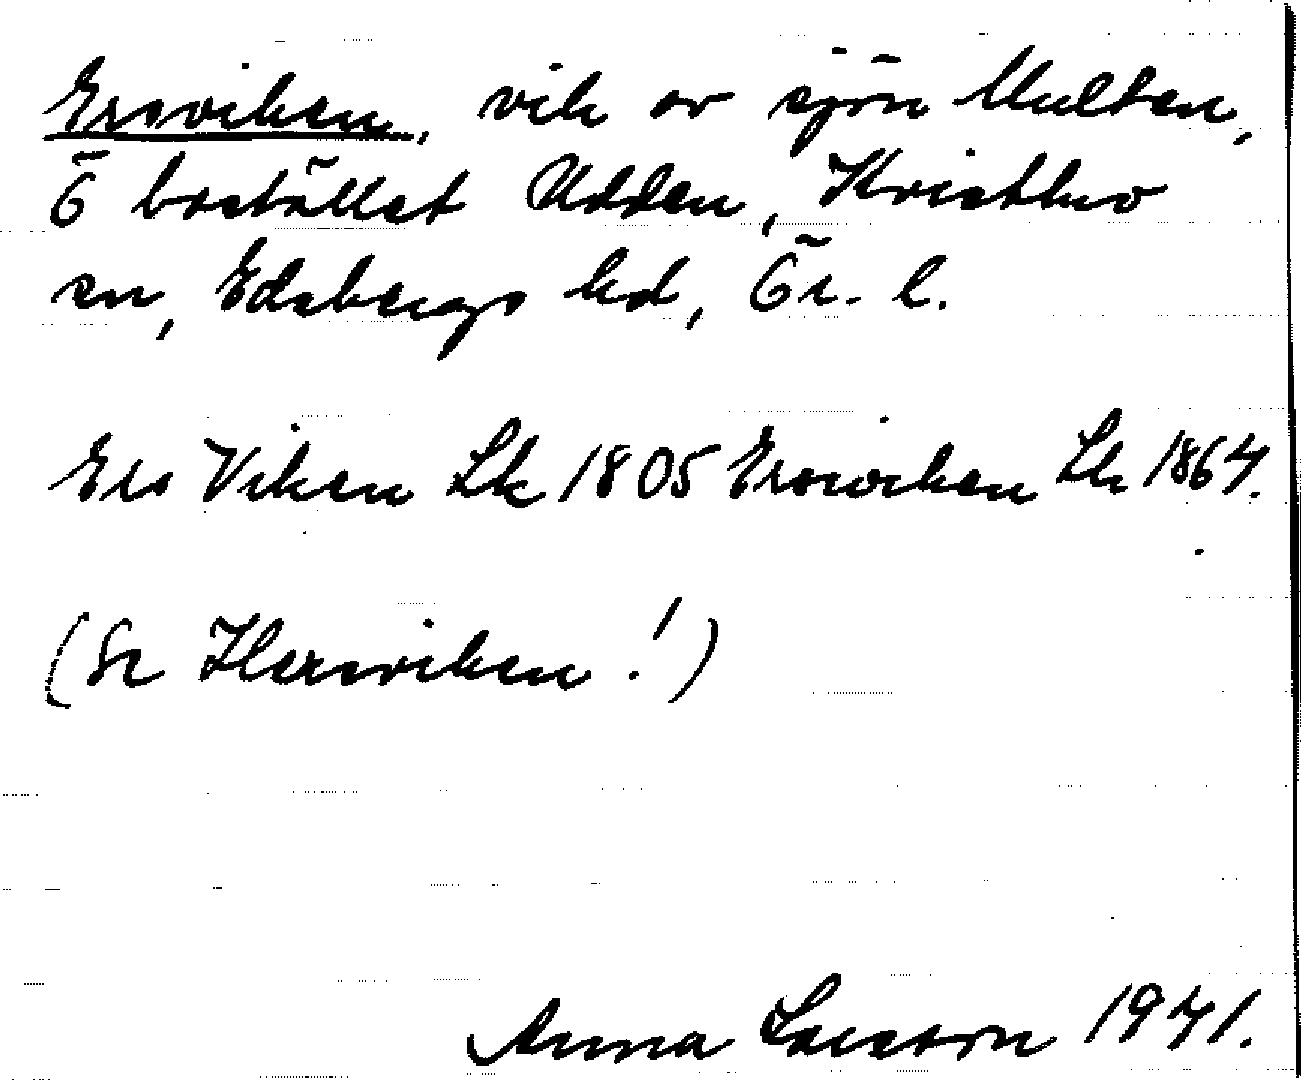 Ersviken, vik av sjön Multen,
Ö bostället Udden, Kvistbro
sn, Edsbergs hd, Ör. l.
Ers Viken Lk 1805 Erswiken Lk 1864.
(Se Hersviken!)
Anna Larsson 1941.